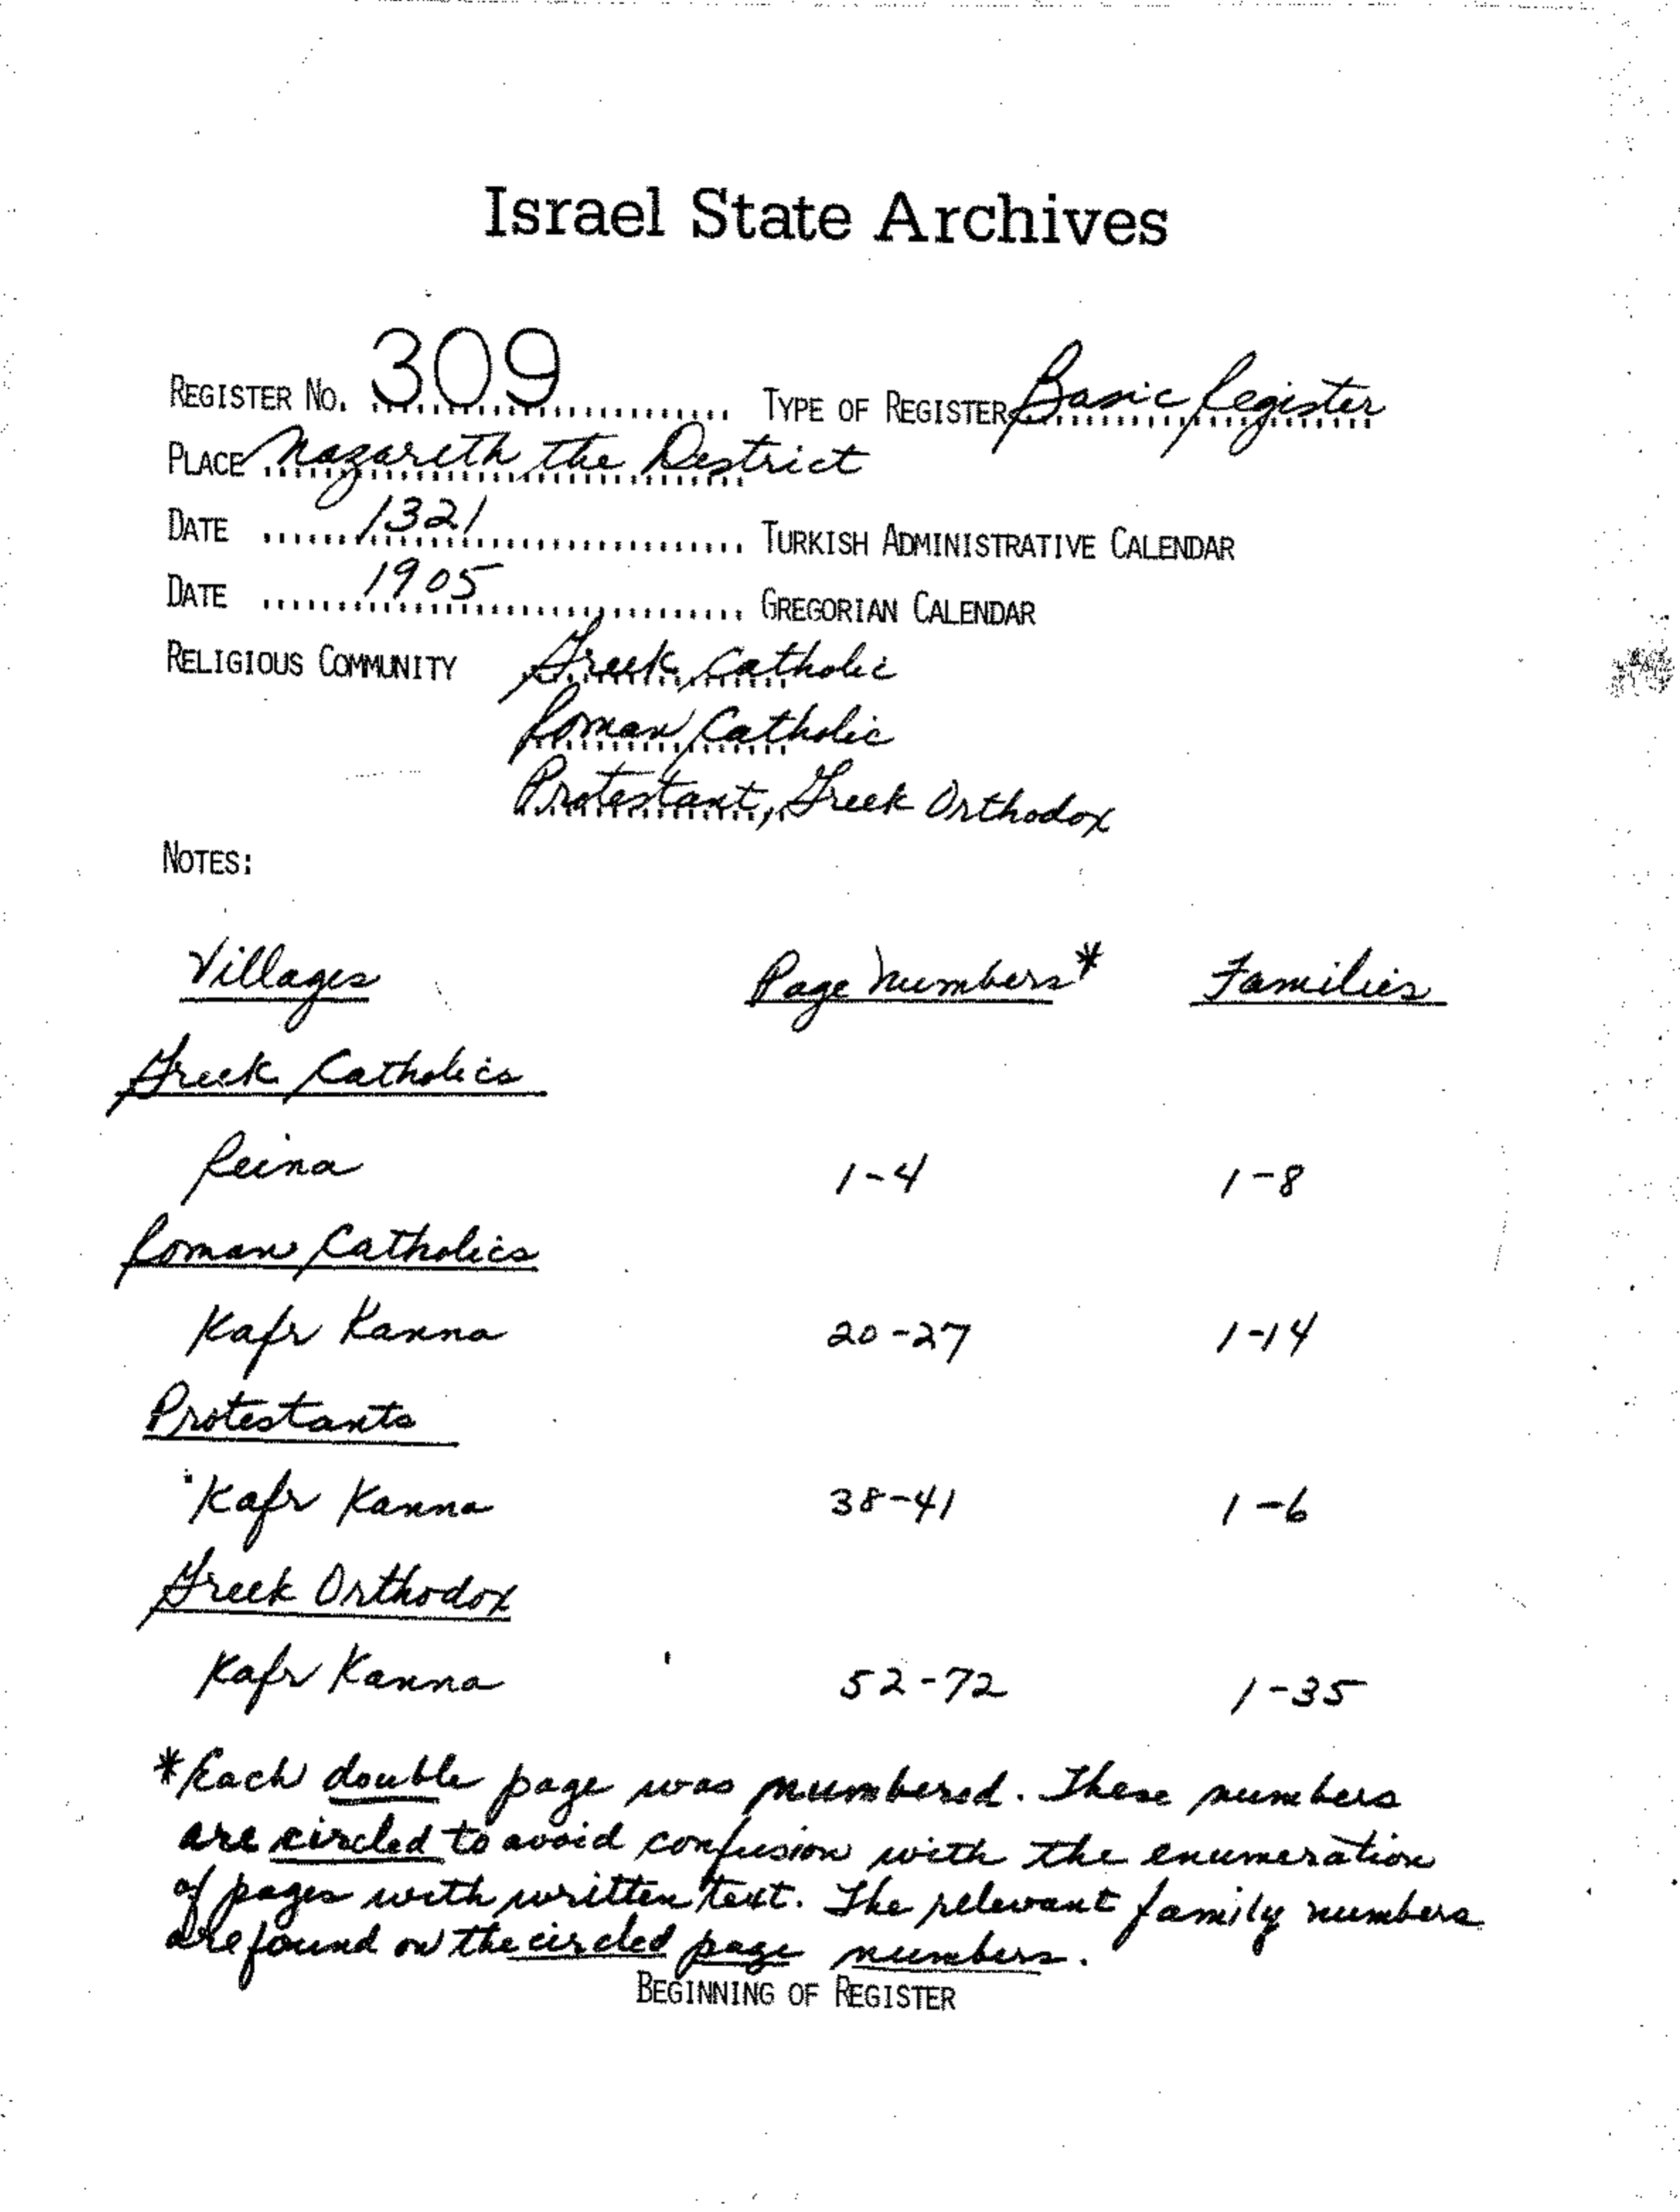 Israel State Archives
REGISTER NO. 309 TYPE OF REGISTER Basic Register
PLACE Nazareth the District
DATE 1321 TURKISH ADMINISTRATIVE CALENDAR
DATE 1905 GREGORIAN CALENDAR
RELIGIOUS COMMUNITY Greek Catholic
Roman Catholic
Protestant, Greek Orthodox
NOTES:
Villages Page Numbers* Families
Greek Catholics
Reina 1-4 1-8
Roman Catholics
Kafr Kanna 20-27 1-14
Protestants
Kafr Kanna 38-41 1-6
Greek Orthodox
Kafr Kanna 52-72 1-35
*Each double page was numbered. These numbers
are circled to avoid confusion with the enumeration
of pages with written text. The relevant family numbers
are found on the circled page numbers.
BEGINNING OF REGISTER